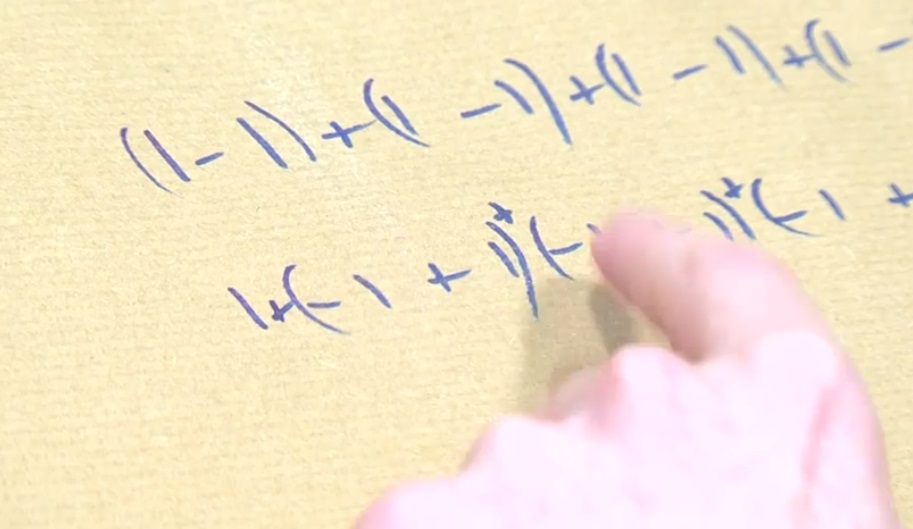 (1-1)+(1-1)+(1-1)+(1-
1+(-1+1)+(-1 1)+(-1+